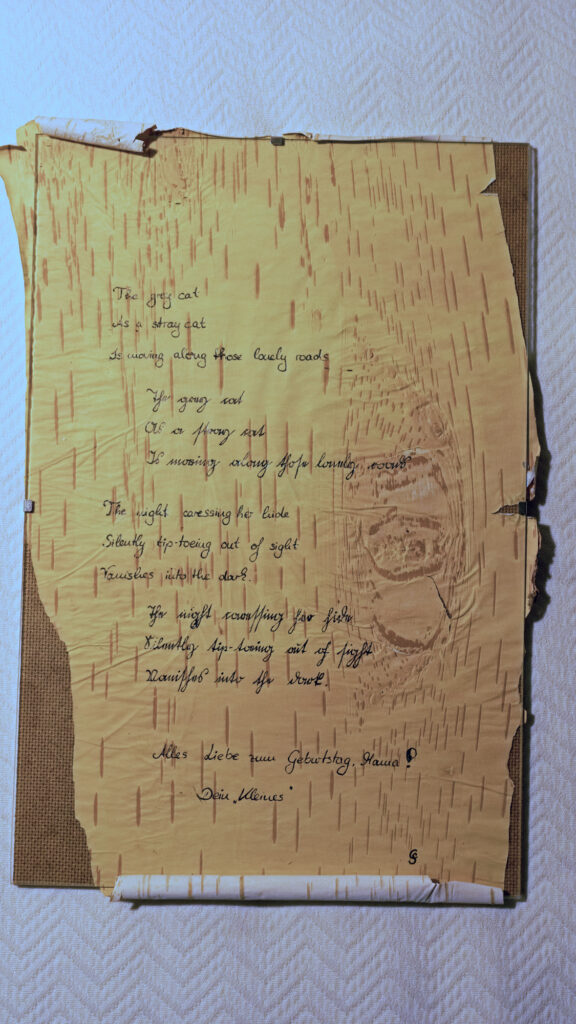 The grey cat
As a stray cat
Is moving along those lonely roads
The grey cat
As a stray cat
Is moving along those lonely roads
The night caressing her hide
Silently tip-toeing out of sight
Vanishes into the dark.
The night caressing her hide
Silently tip-toeing out of sight
Vanishes into the dark.
Alles Liebe zum Geburtstag, Mama!
Dein „Kleines"